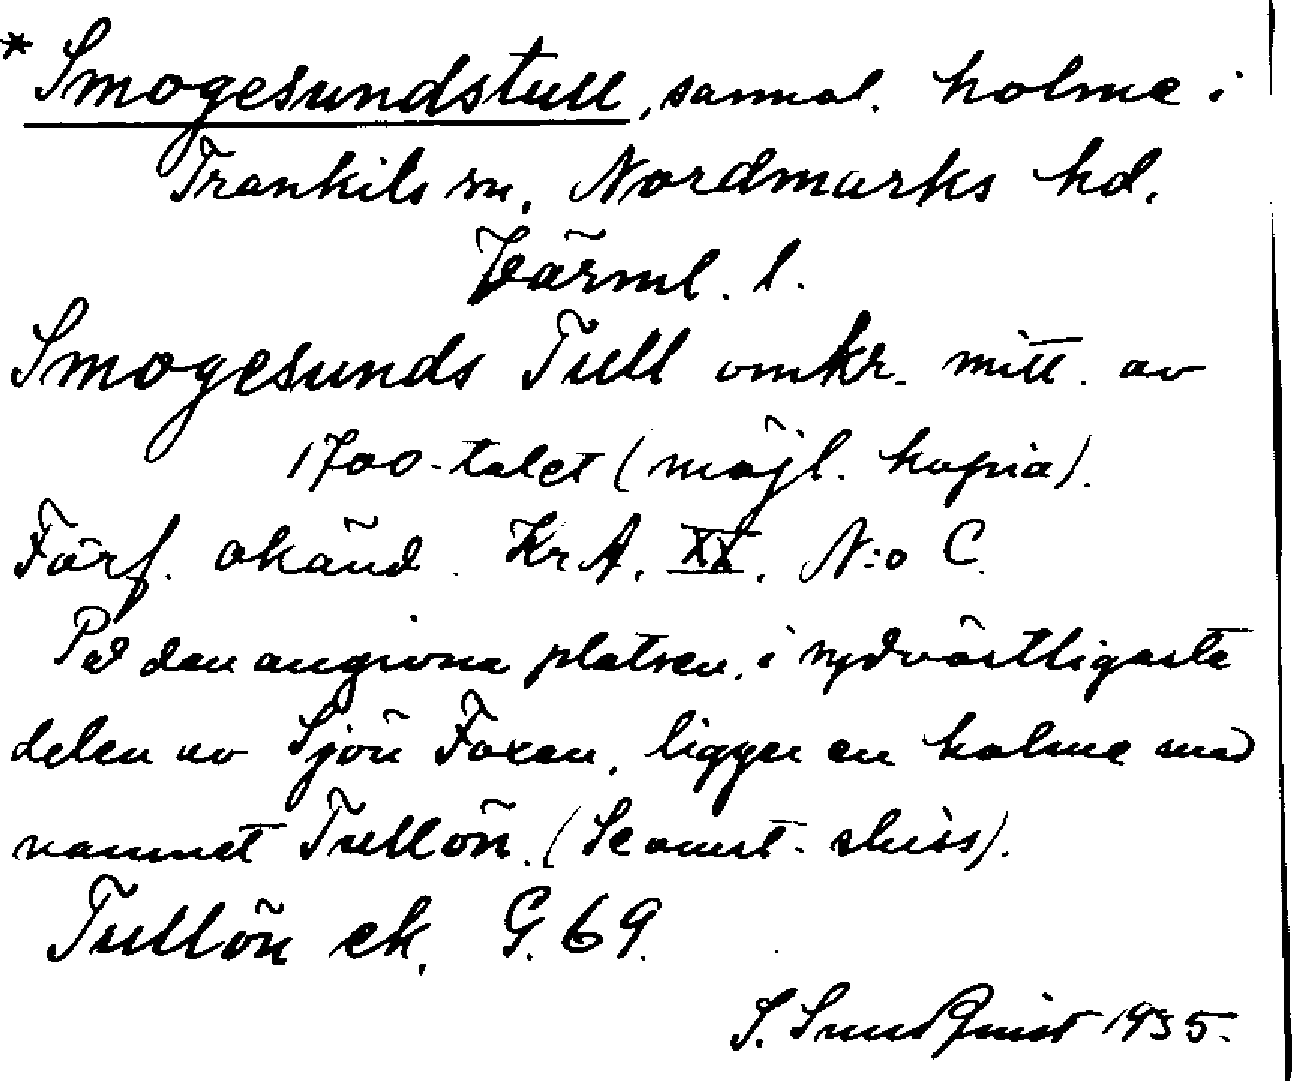 * Smogesundstull, sannol. holme i
Trankils sn, Nordmarks hd.
Värml. l.
Smogesunds Tull omkr. mitt. av
1700-talet (möjl. kopia).
Förf. okänd. Kr A. XX. N:o C.
På den angivna platsen, i sydvästligaste
delen av Sjön Foxen, ligger en holme med
namnet Tullön. (Se anust. skiss).
Tullön ek. G. 69.
S. Sundquist 1935.